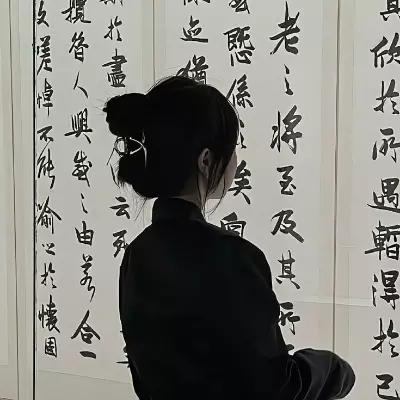 其欣於所遇暫得於己
老之將至及其所
慨係矣向
迹猶
於盡云死
攬昔人興感之由若合一
文嗟悼不能喻之於懷固